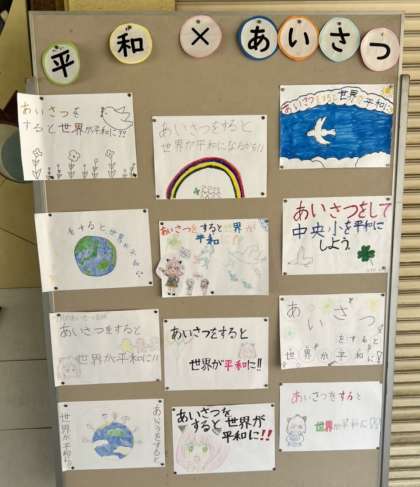 平和×あいさつ
あいさつを
すると世界が平和に!!
あいさつをすると
世界が平和になるから!!
あいさつをすると世界が平和に
をすると世界が平和
あいさつをすると世界が
平和
あいさつをして
中央小を平和に
しよう
あいさつをすると
世界が平和に!!
あいさつをすると
世界が平和に!!
あいさつ
をすると
世界が平和に!!
世界が平和に
あいさつをすると
あいさつを
すると世界が
平和に!!
あいさつをすると
世界が平和に!!